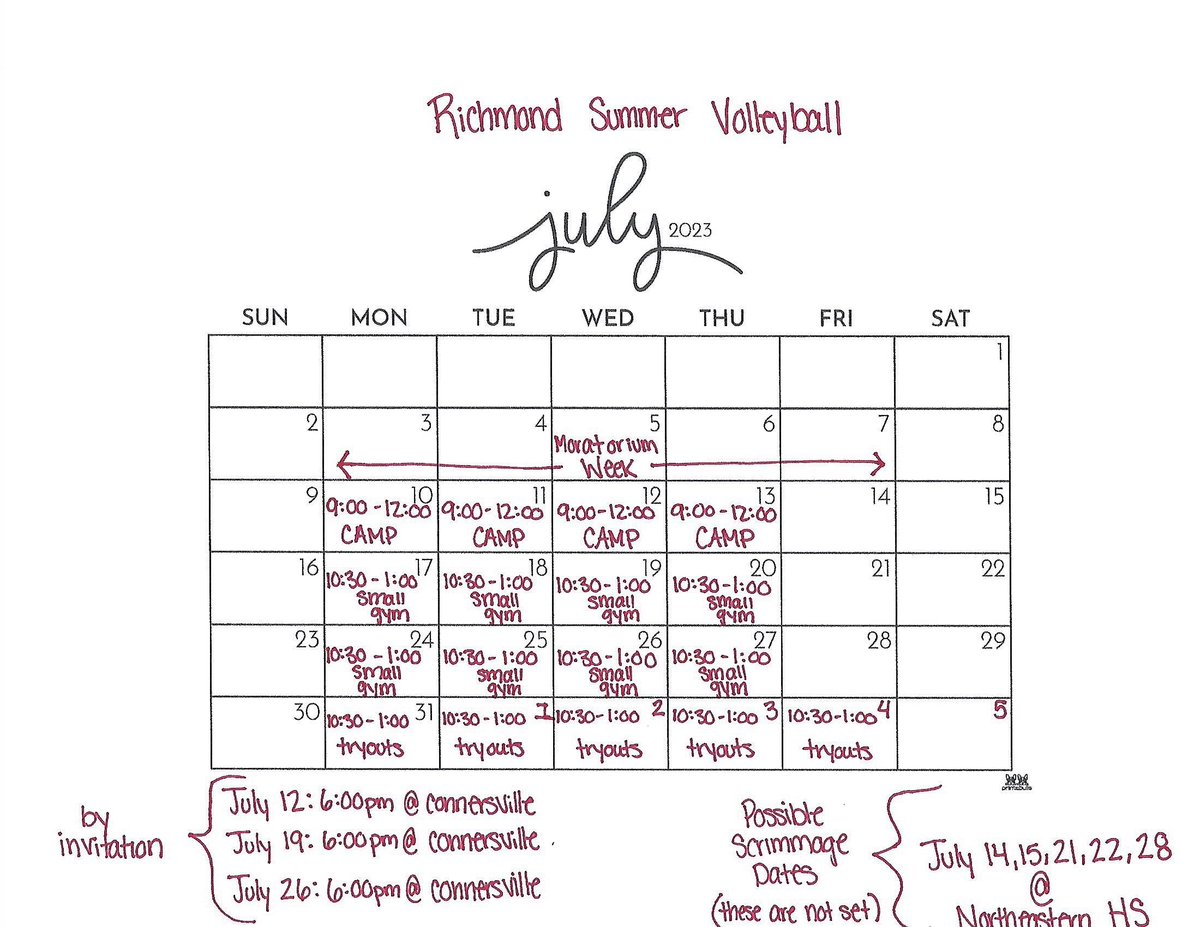 Richmond Summer Volleyball
july 2023
SUN MON TUE WED THU FRI SAT
1
2 3 4 5 6 7 8
Moratorium
Week
9 10 11 12 13 14 15
9:00-12:00 9:00-12:00 9:00-12:00 9:00-12:00
CAMP CAMP CAMP CAMP
16 17 18 19 20 21 22
10:30-1:00 10:30-1:00 10:30-1:00 10:30-1:00
small small small small
gym gym gym gym
23 24 25 26 27 28 29
10:30-1:00 10:30-1:00 10:30-1:00 10:30-1:00
small small small small
gym gym gym gym
30 31 1 2 3 4 5
10:30-1:00 10:30-1:00 10:30-1:00 10:30-1:00 10:30-1:00
tryouts tryouts tryouts tryouts tryouts
printabulls
by
invitation
July 12: 6:00pm @ connersville
July 19: 6:00pm @ connersville
July 26: 6:00pm @ connersville
Possible
Scrimmage
Dates
(these are not set)
July 14, 15, 21, 22, 28
@
Northeastern HS